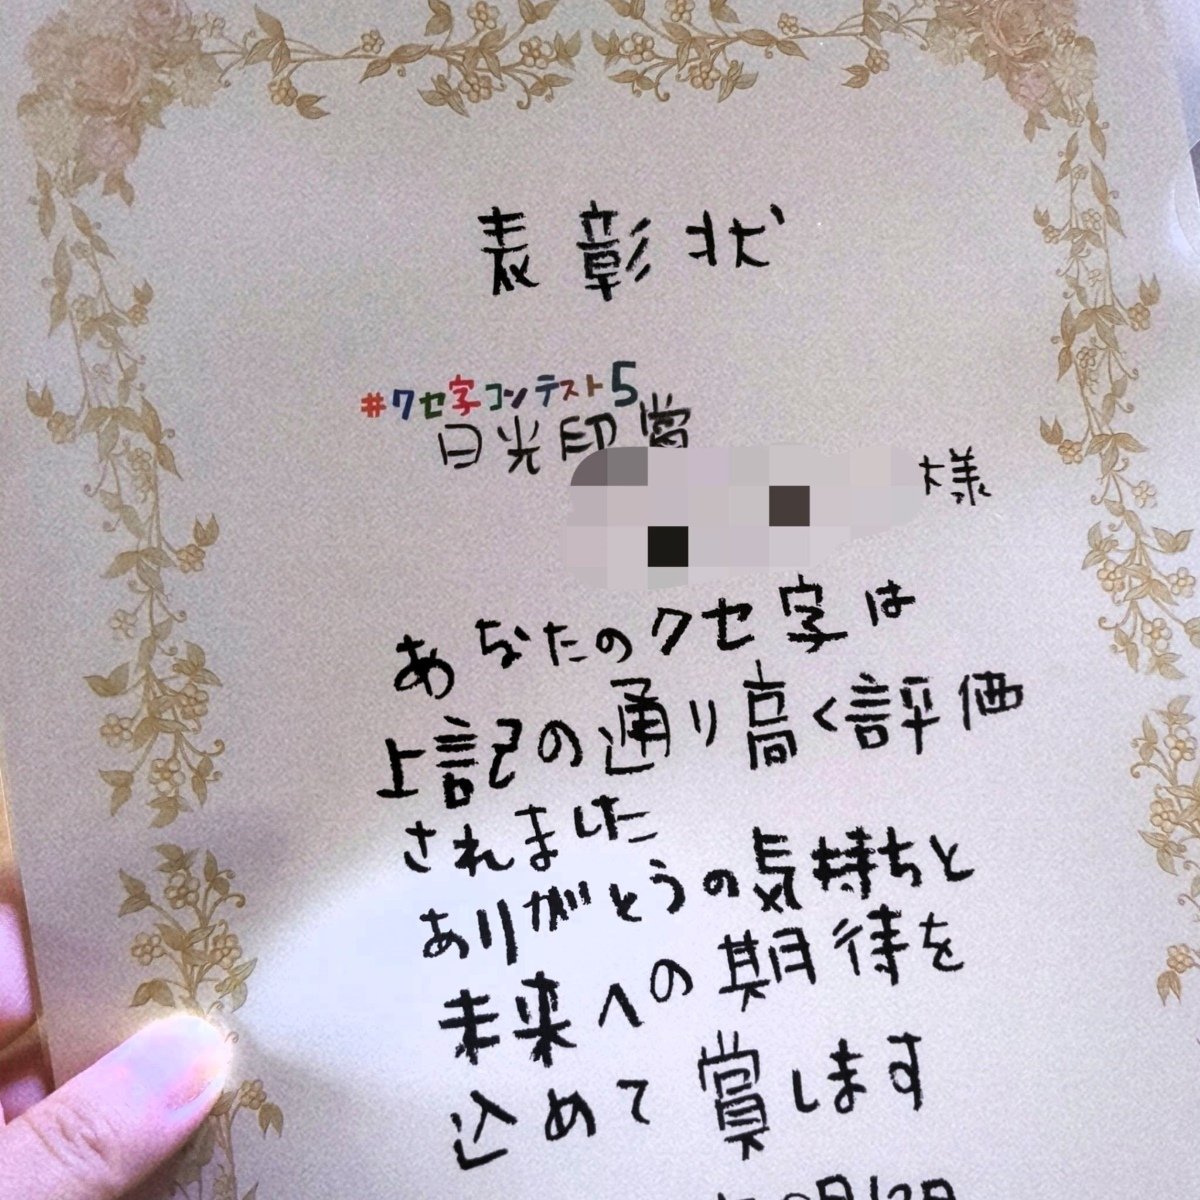 表彰状
#クセ字コンテスト5
日光印賞
様
あなたのクセ字は
上記の通り高く評価
されました
ありがとうの気持ちと
未来への期待を
込めて賞します